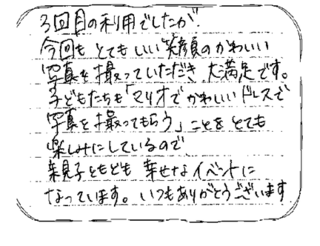 3回目の利用でしたが、
今回も とてもいい笑顔のかわいい
写真を撮っていただき 大満足です。
子どもたちも「マリオでかわいいドレスで
写真を撮ってもらう」ことをとても
楽しみにしているので
親子ともども 幸せなイベントに
なっています。いつもありがとうございます